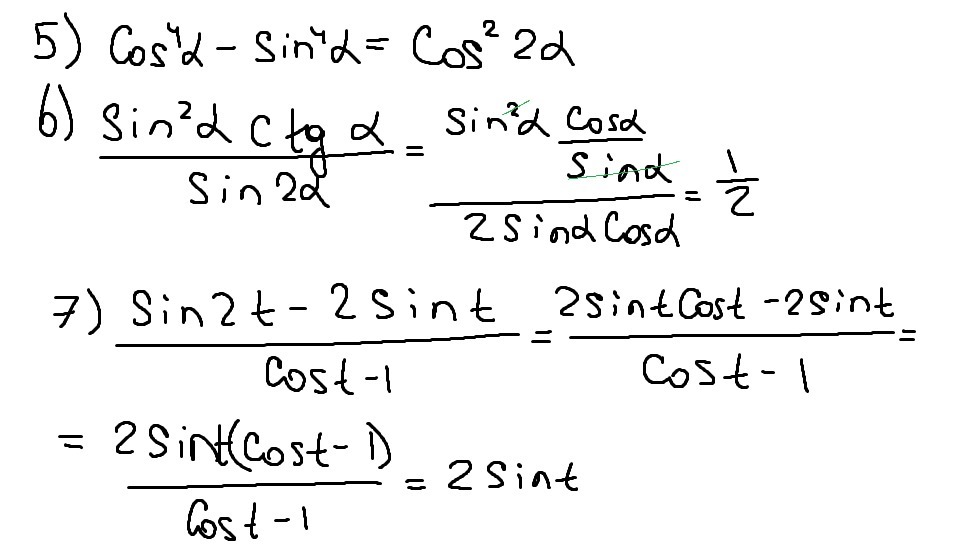 5) Cos⁴α - Sin⁴α = Cos² 2α
6) (Sin²α ctg α)/(Sin 2α) = (Sin²α (Cosα)/(Sinα))/(2 Sinα Cosα) = 1/2
7) (Sin2t - 2Sint)/(Cost-1) = (2SintCost - 2Sint)/(Cost-1) =
= (2Sint(Cost-1))/(Cost-1) = 2Sint